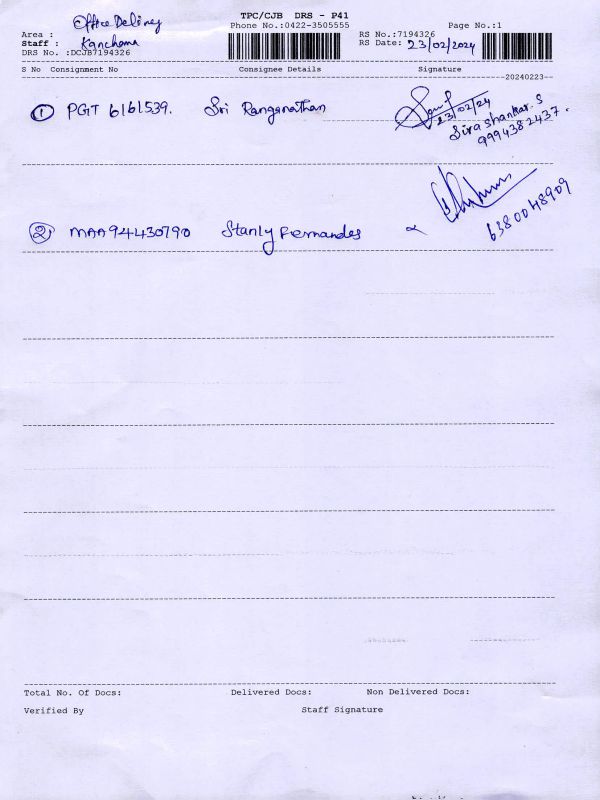 TPC/CJB DRS - P41
Area : Office Delivey
Phone No.:0422-3505555
Page No.:1
Staff : Kanchana
RS No.:7194326
DRS No. :DCJB7194326
RS Date: 23/02/2024
S No Consignment No Consignee Details Signature
20240223
1 PGT 6161539. Sri Ranganathan
23/02/24
Siva Shankar. S
9994382437.
2 MAA94430790 Stanly Fernandes
6380048909
Total No. Of Docs: Delivered Docs: Non Delivered Docs:
Verified By Staff Signature